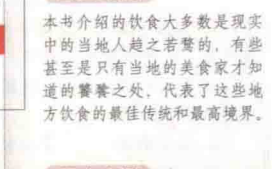 本书介绍的饮食大多数是现实
中的当地人趋之若鹜的，有些
甚至是只有当地的美食家才知
道的饕餮之处，代表了这些地
方饮食的最佳传统和最高境界。